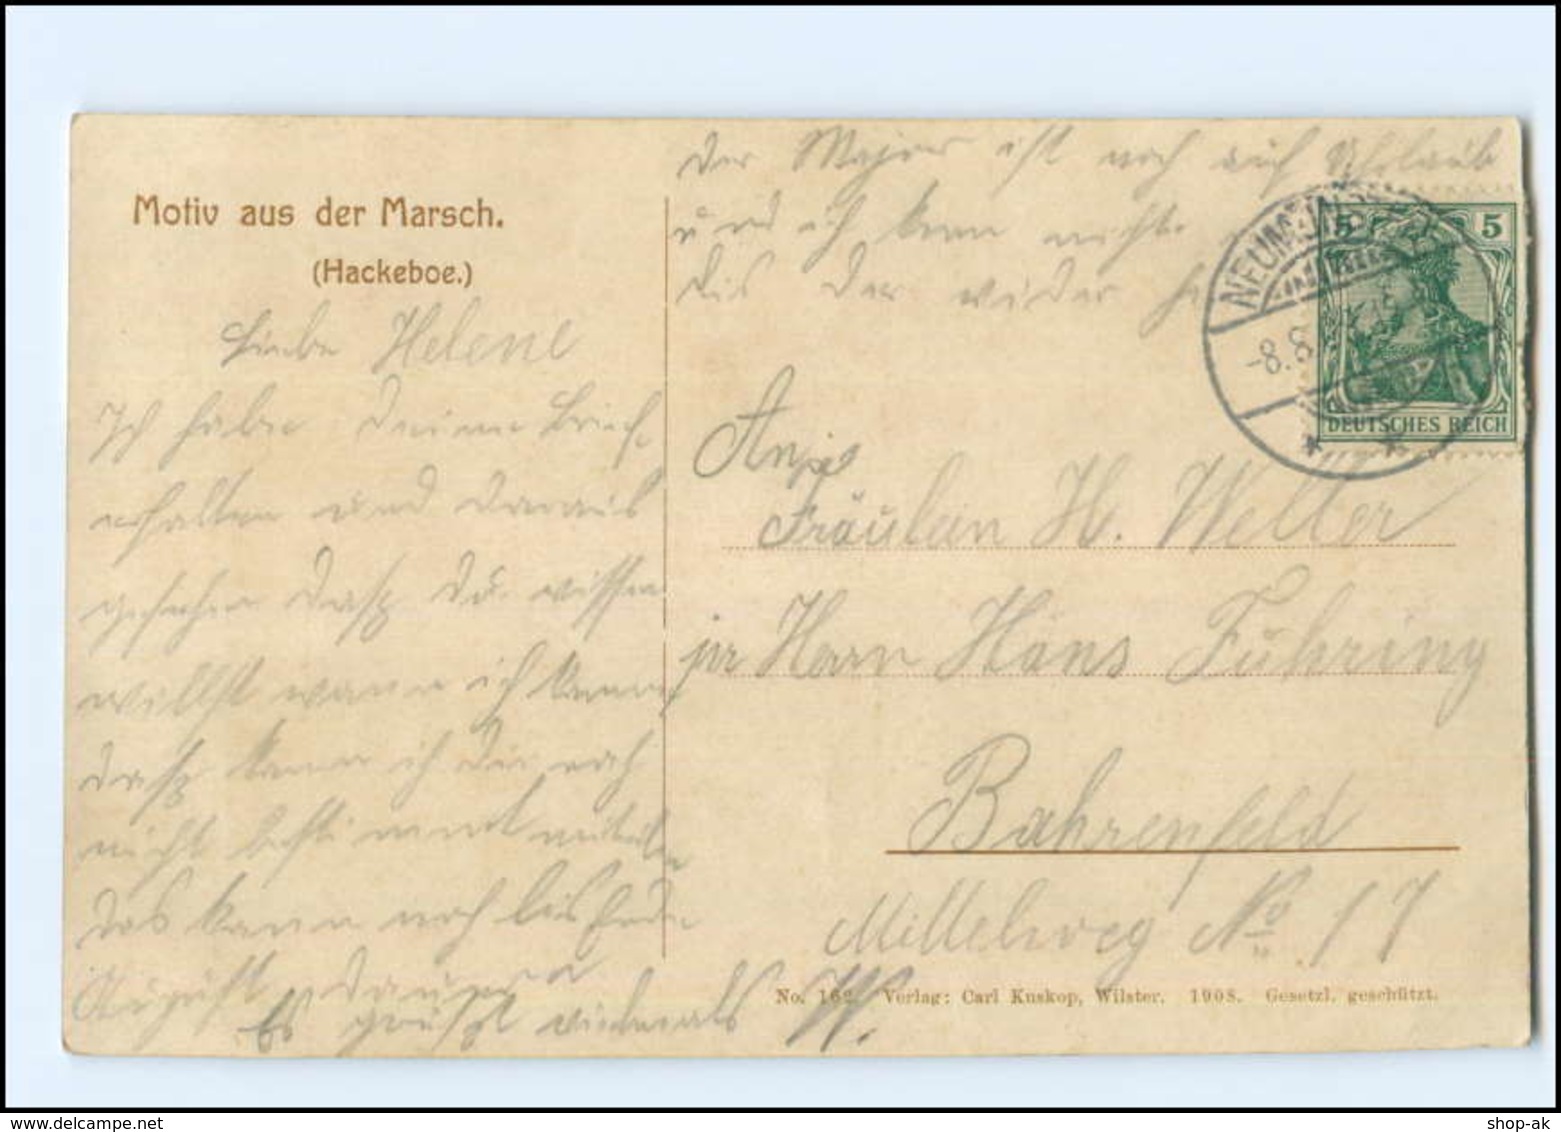 Motiv aus der Marsch.
(Hackeboe.)
Liebe Helene
Ich habe deinen Brief
erhalten und daraus
gesehen dasz du wissen
willst wann ich komme
dasz kann ich dir noch
nicht bestimmt mitteilen
das kann noch bis Ende
August dauern
Es grüszt vielmals W.
der Major ist noch auf Uhrlaub
und ich kann nicht
bis der wider
NEUMÜNSTER
-8.8.
5 5
DEUTSCHES REICH
An
Fräulein H. Weller
pr Herrn Hans Führing
Bahrenfeld
Mittelweg No 17
No. 162. Verlag: Carl Kuskop, Wilster. 1908. Gesetzl. geschützt.
shop-ak